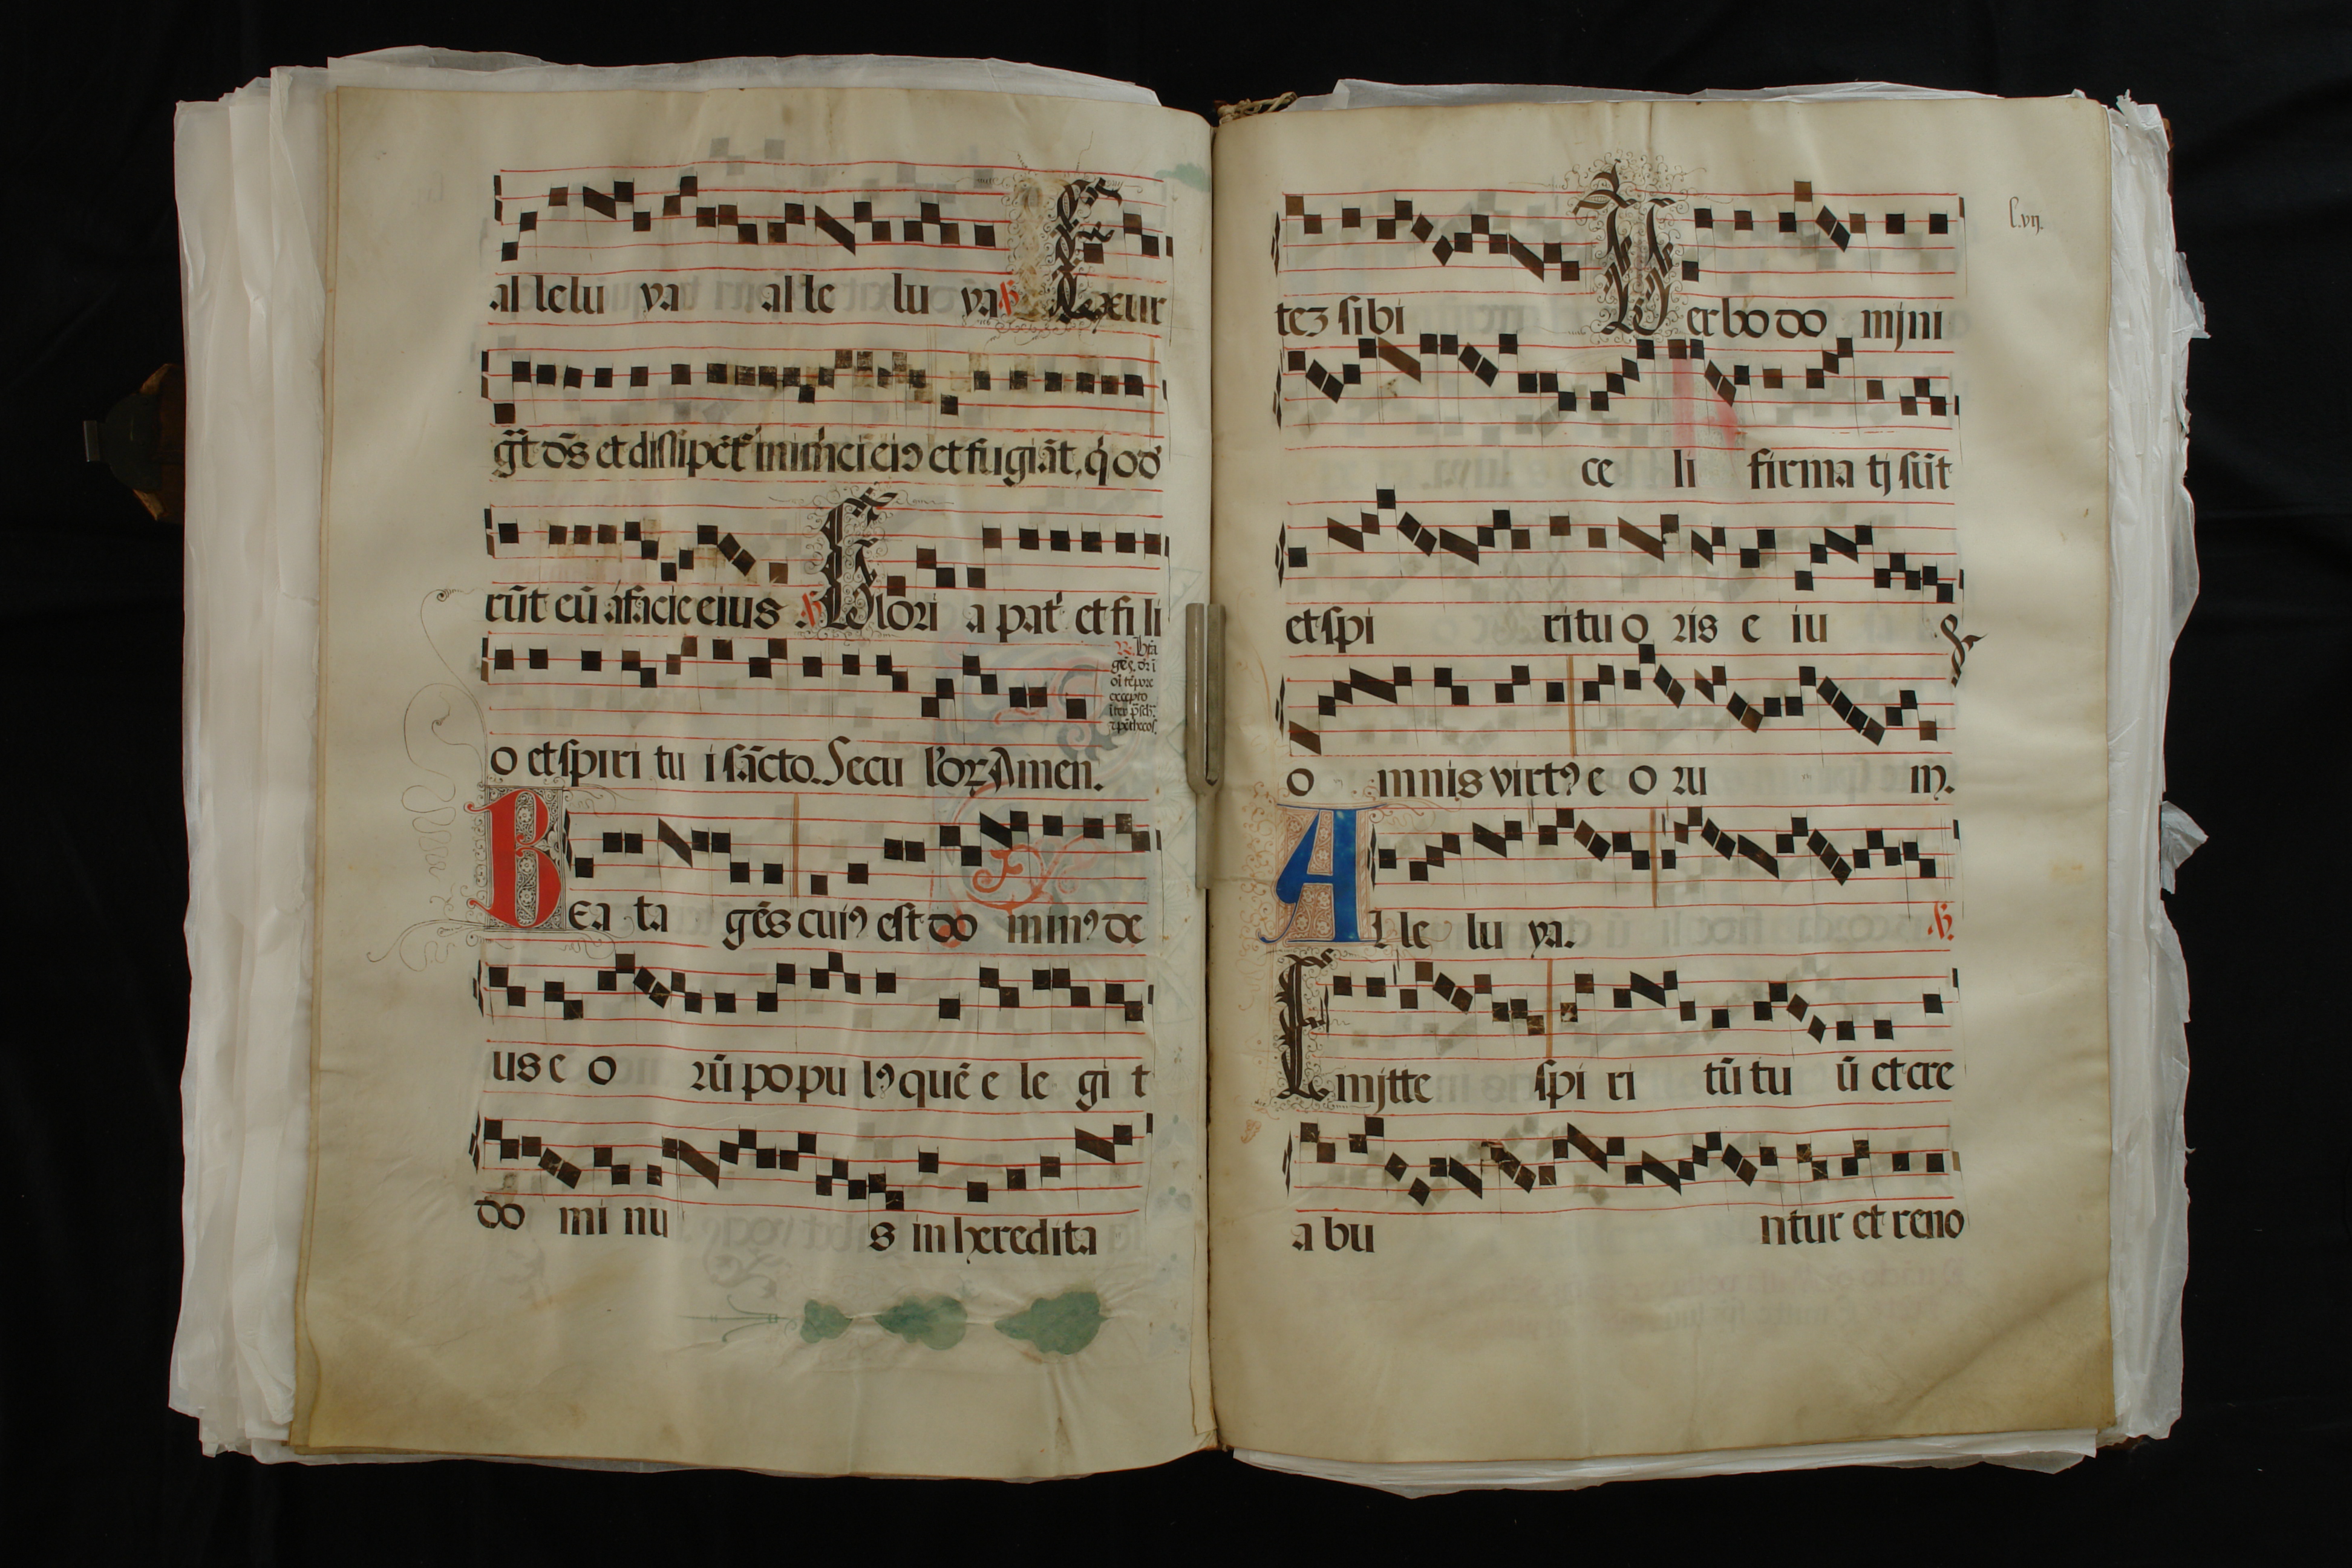 al lelu ya al le lu ya ℟ Exur
gr̄t dn̄s et dissipēt inimici eiꝰ et fugiāt, q̇ od
rūt eū afacie eius ℟ Glori a pat' et fi li
o et spiri tu i sācto. Secu l'oꝝ Amen.
Bea ta gēs cuiꝰ est do minꝰ de
us e o rū popu lꝰ quē e le gi t
do mi nu s in heredita
l.vij.
tez sibi Verbo do mjni
ce li firma tj sūt
et spi ritu o ris e iu s
o mnis virtꝰ e o ru m.
Al le lu ya. ℟
Emjtte spi ri tū tu ū et cre
a bu ntur et reno